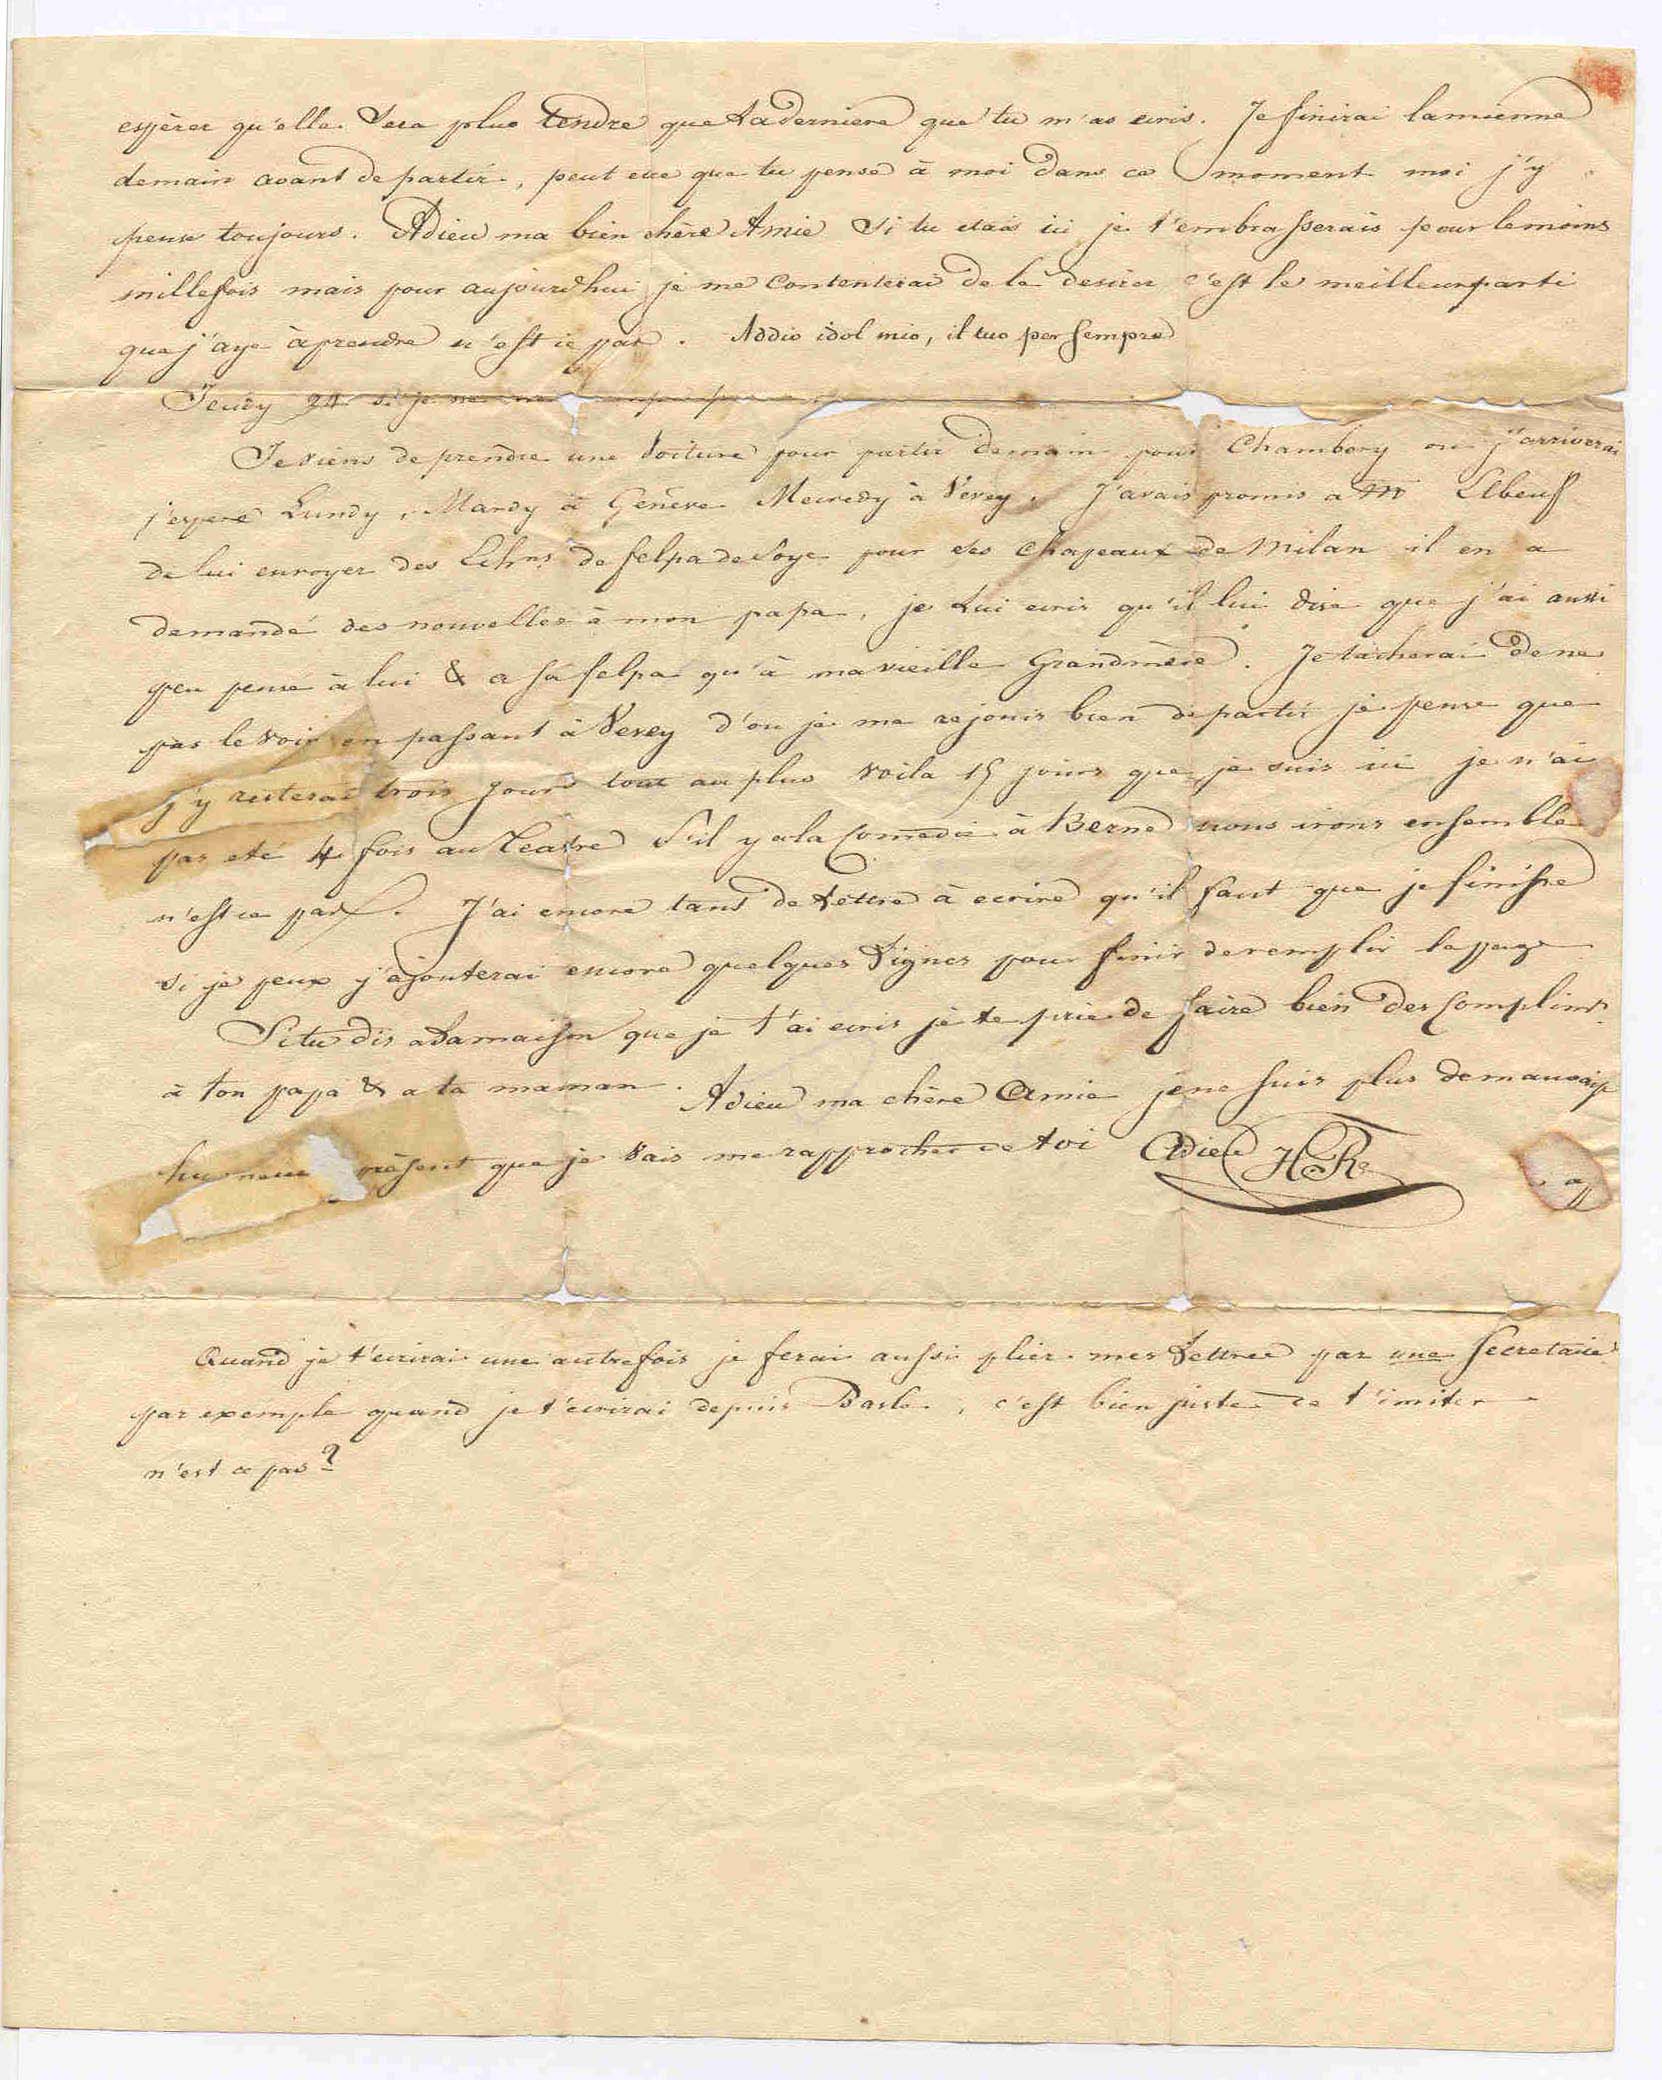 espèrer qu'elle sera plus tendre que la derniere que tu m'as ecris. Je finirai la mienne
demain avant de partir, peut etre que tu pense à moi dans ce moment moi j'y
pense toujours. Adieu ma bien chère Amie si tu etais ici je t'embrasserais pour le moins
mille fois mais pour aujourd'hui je me contenterai de le desirer c'est le meilleur parti
que j'aye à prendre n'est ce pas. Addio idol mio, il tuo per sempre
Jeudy 24 si je ne
Je viens de prendre une voiture pour partir demain pour Chambery ou j'arriverai
j'espere Lundy, Mardy à Genève Mecredy à Vevey. J'avais promis a Mr
de lui envoyer des de felpa de soye pour des chapeaux de Milan il en a
demandé des nouvelles à mon papa, je lui ecris qu'il lui dise que j'ai aussi
peu pensé à lui & a sa felpa qu'à ma vieille Grandmère. Je tacherai de ne
pas le voir en passant à Vevey d'ou je me rejouis bien de partir je pense que
j'y resterai trois jours tout au plus voila 15 jours que je suis ici je n'ai
pas eté 4 fois au Teatre s'il y a la Comedie à Berne nous irons ensemble
n'est ce pas. J'ai encore tant de lettre à ecrire qu'il faut que je finisse
si je peux j'ajouterai encore quelques lignes pour finir de remplir la page
Si tu dis a la maison que je t'ai ecris je te prie de faire bien des Complimts
à ton papa & a ta maman. Adieu ma chère Amie je ne suis plus de mauvaise
humeur présent que je vais me rapprocher de toi Adieu HR
Quand je t'ecrirai une autre fois je ferai aussi plier mes lettres par une Secretaire
par exemple quand je t'ecrirai depuis Basle, c'est bien juste de t'imiter
n'est ce pas?